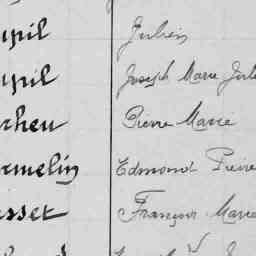 upil Julien
upil Joseph Marie Jule
rheu Pierre Marie
rmelin Edmond Pierre
sset François Marie